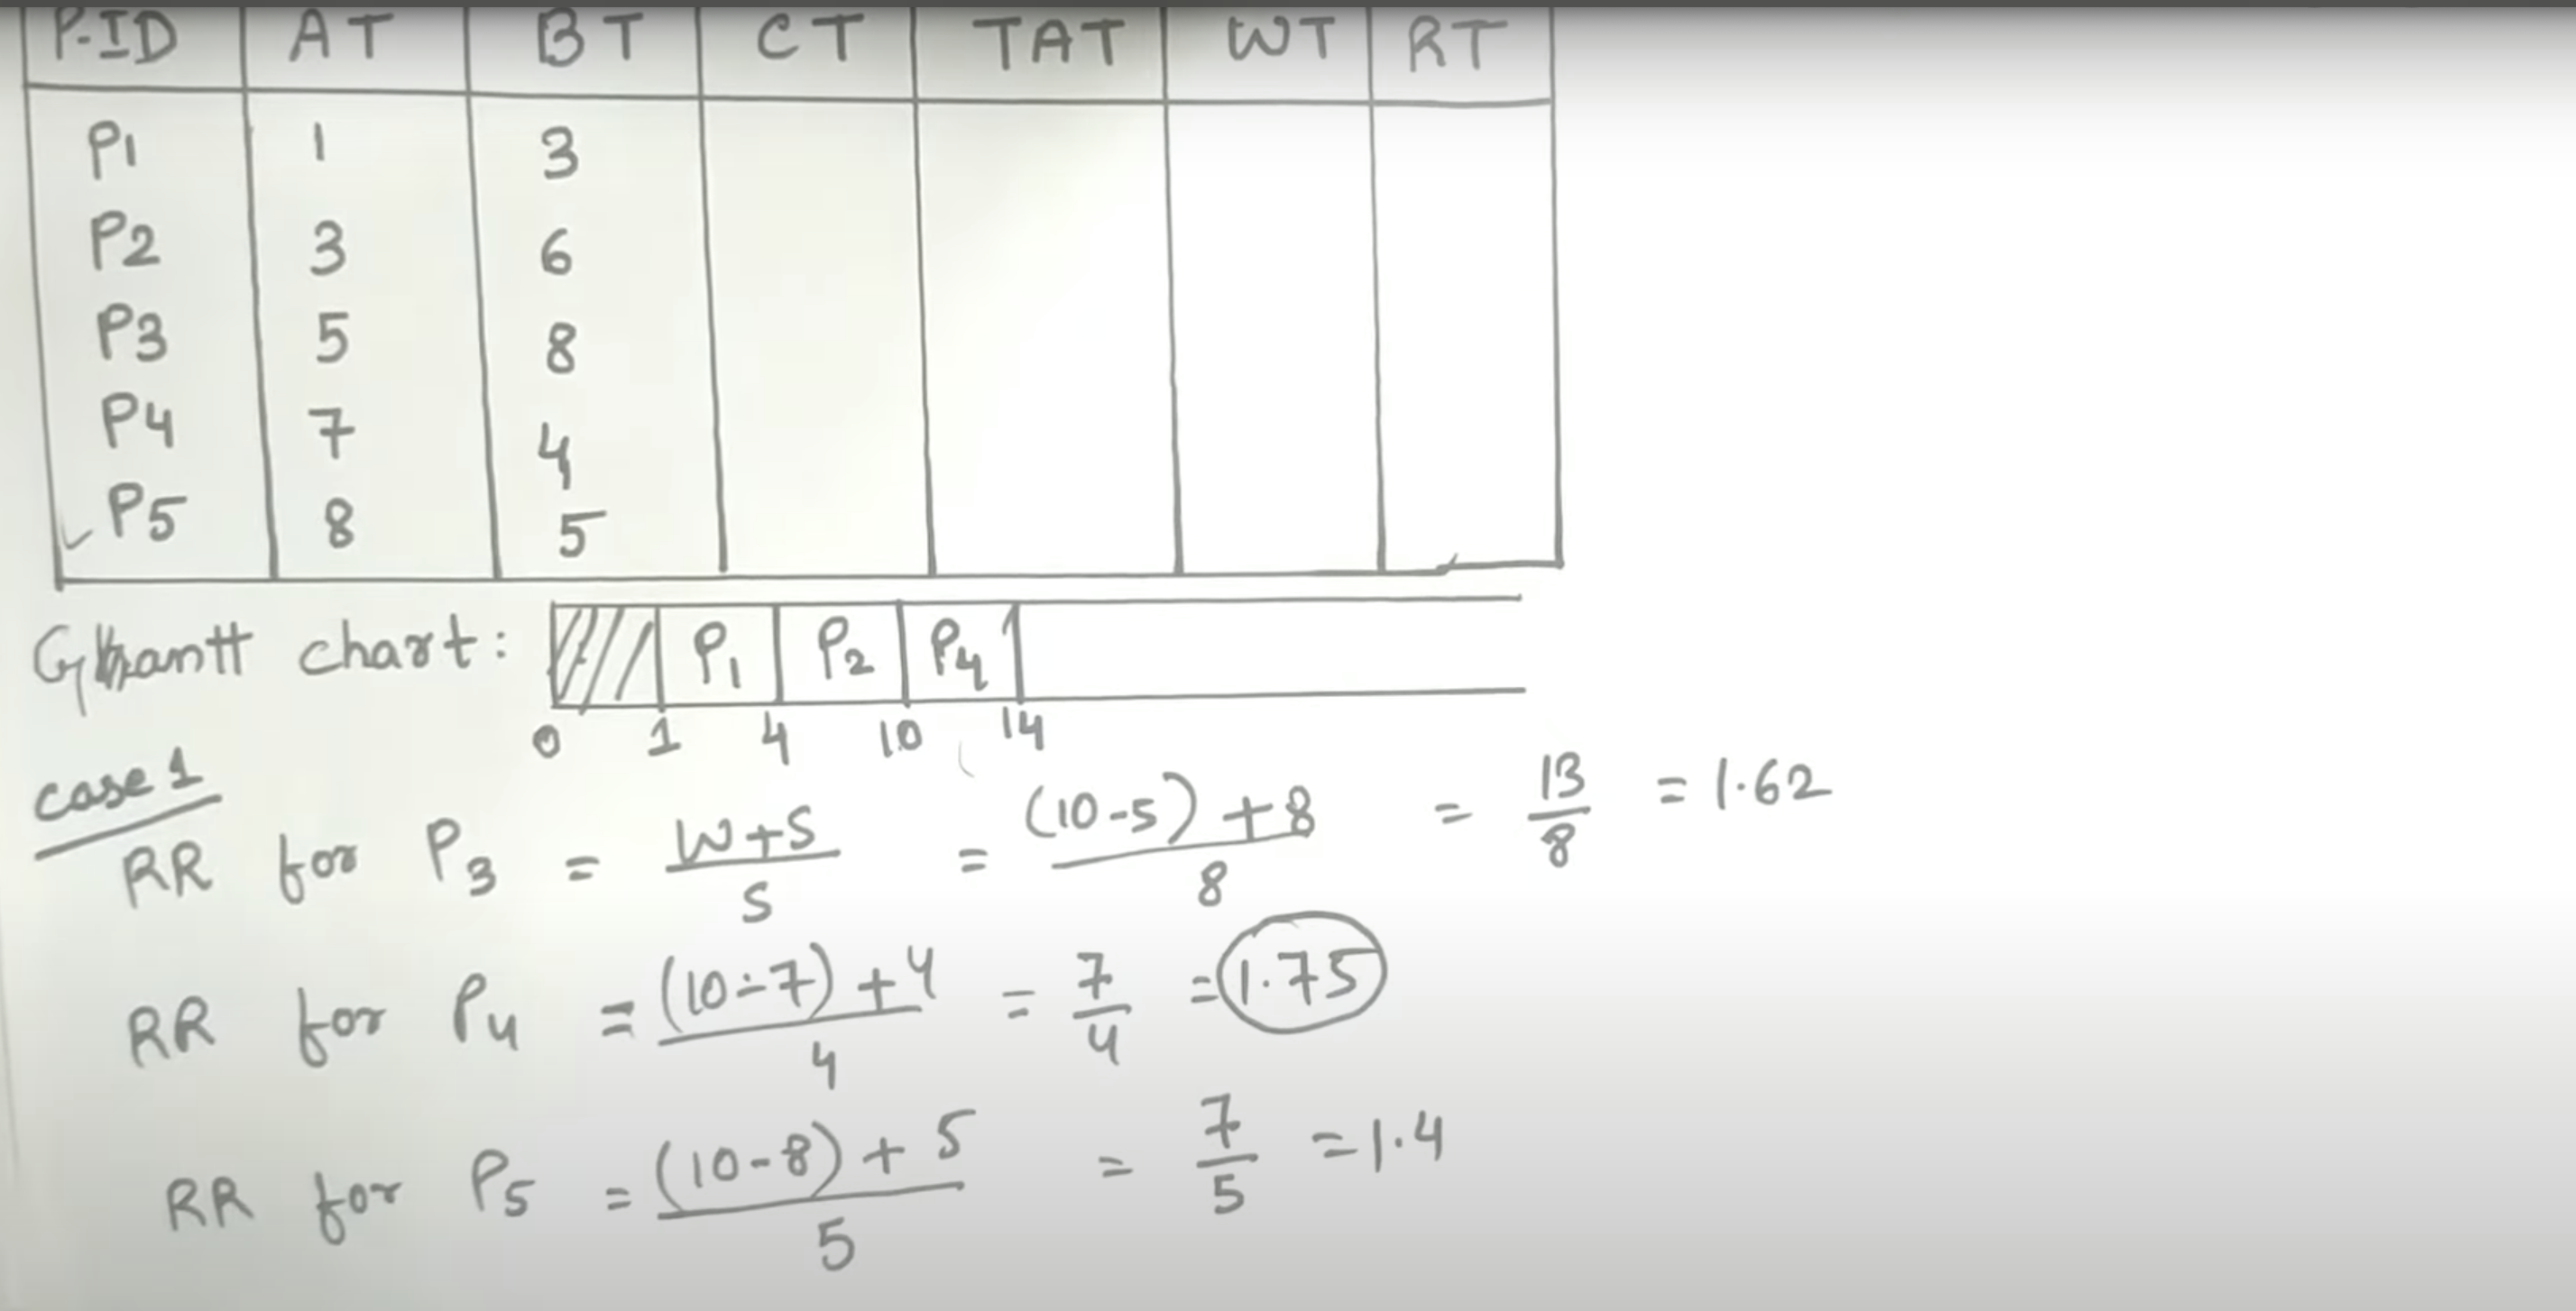 P-ID AT BT CT TAT WT RT
P1 1 3
P2 3 6
P3 5 8
P4 7 4
P5 8 5
Gantt chart: P1 P2 P4
0 1 4 10 14
case 1
RR for P3 = W+S / S = (10-5)+8 / 8 = 13/8 = 1.62
RR for P4 = (10-7)+4 / 4 = 7/4 = 1.75
RR for P5 = (10-8)+5 / 5 = 7/5 = 1.4